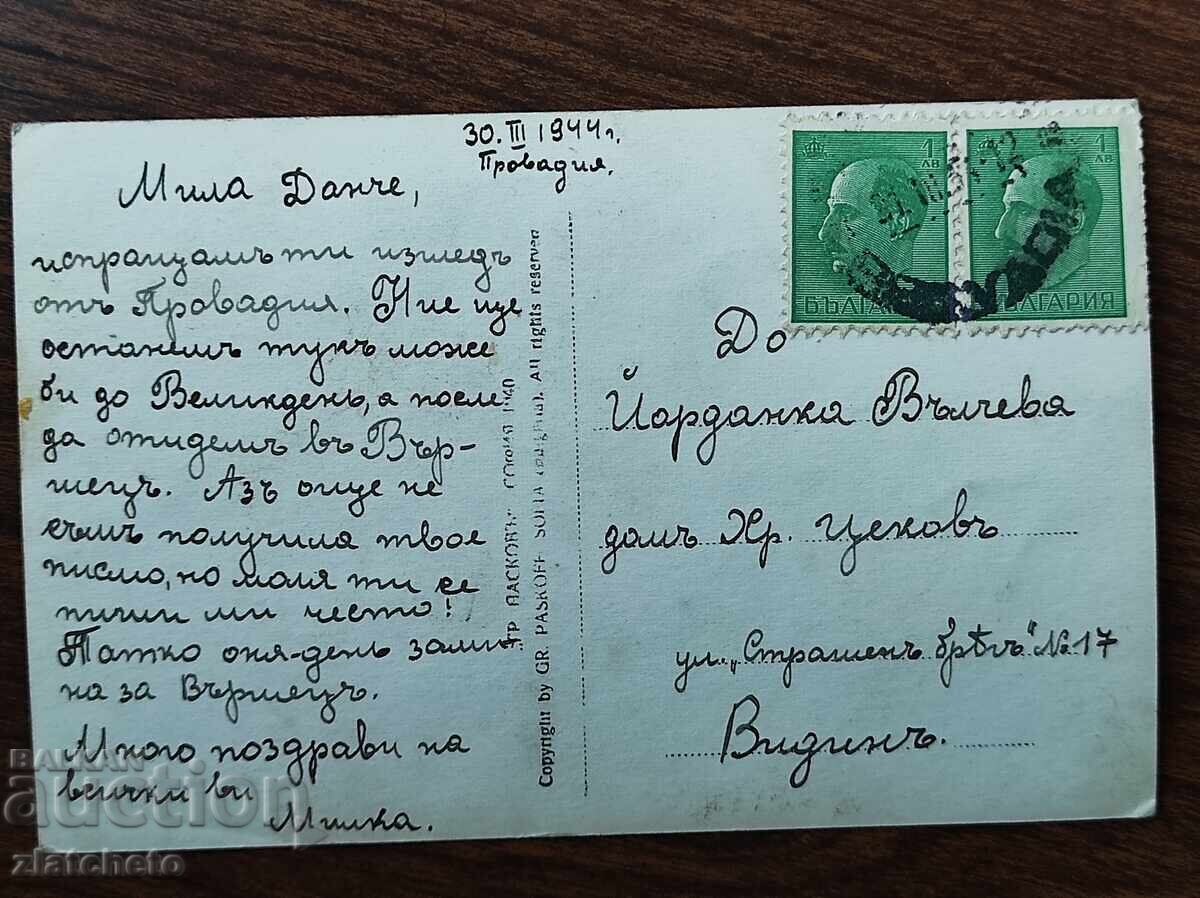 30. III 1944 г.
Провадия.
Мила Данче,
испращамъ ти изгледъ
отъ Провадия. Ние ще
останемъ тукъ може
би до Великдень, а после
да отидемъ въ Вър-
шецъ. Азъ още не
съмъ получила твое
писмо, но моля ти се
пиши ми често!
Татко оня-день зами-
на за Вършецъ.
Много поздрави на
всички ви
Милка.
ГР ПАСКОВЪ СОФИЯ 1940
Copyright by GR PASKOFF SOFIA (original). All rights reserved
1 ЛВ
БЪЛГАРИЯ
1 ЛВ
БЪЛГАРИЯ
До
Йорданка Вълчева
домъ Хр. Цековъ
ул. „Страшенъ брѣгъ" № 17
Видинъ.
BALKAN
auction
zlatcheto